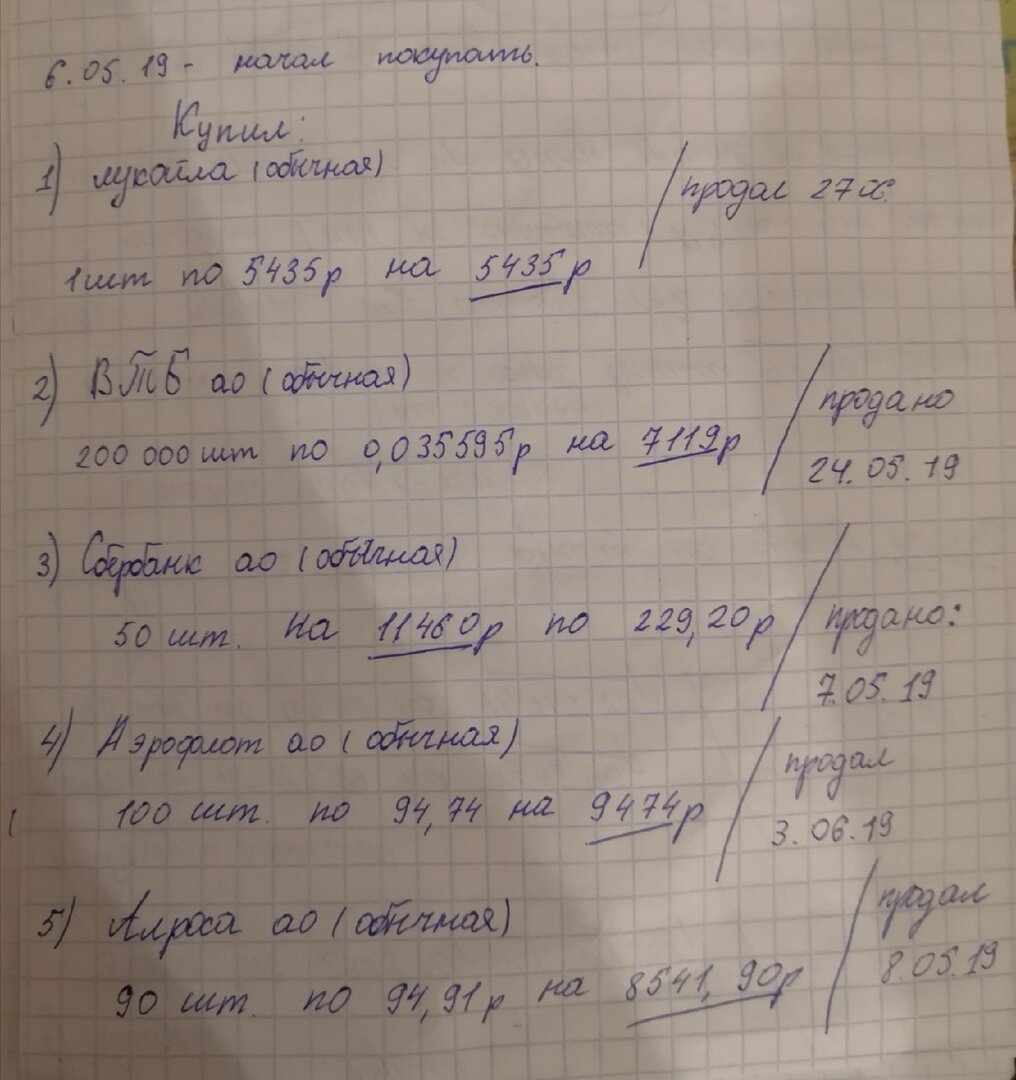 6.05.19 - начал покупать.
Купил:
1) лукойла (обычная)
продал 27
1 шт по 5435р на 5435р
2) ВТБ ао (обычная)
продано
200 000 шт по 0,035595р на 7119р
24.05.19
3) Сбербанк ао (обычная)
50 шт. на 11460р по 229,20р
продано:
7.05.19
4) Аэрофлот ао (обычная)
продал
100 шт. по 94,74 на 9474р
3.06.19
5) Алроса ао (обычная)
продал
90 шт. по 94,91р на 8541,90р
8.05.19